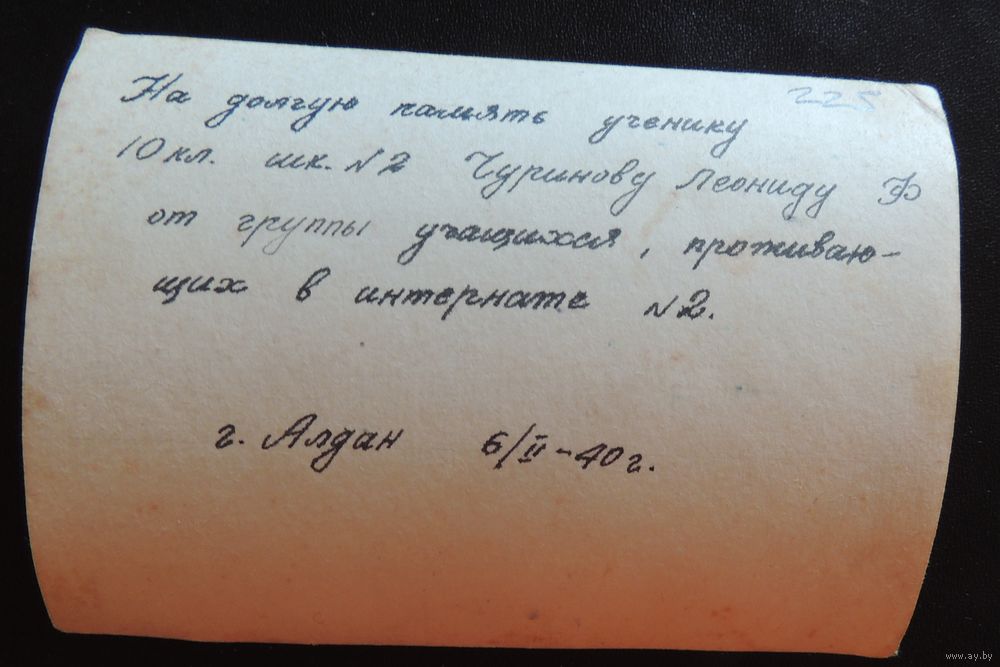 225
На долгую память ученику
10 кл. шк. №2 Чуринову Леониду Ф
от группы учащихся, проживаю-
щих в интернате №2.
г. Алдан 6/II-40 г.
www.ay.by